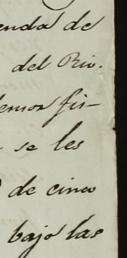 enda de
del Rio.
emos fir-
se les
de cinco
bajo las